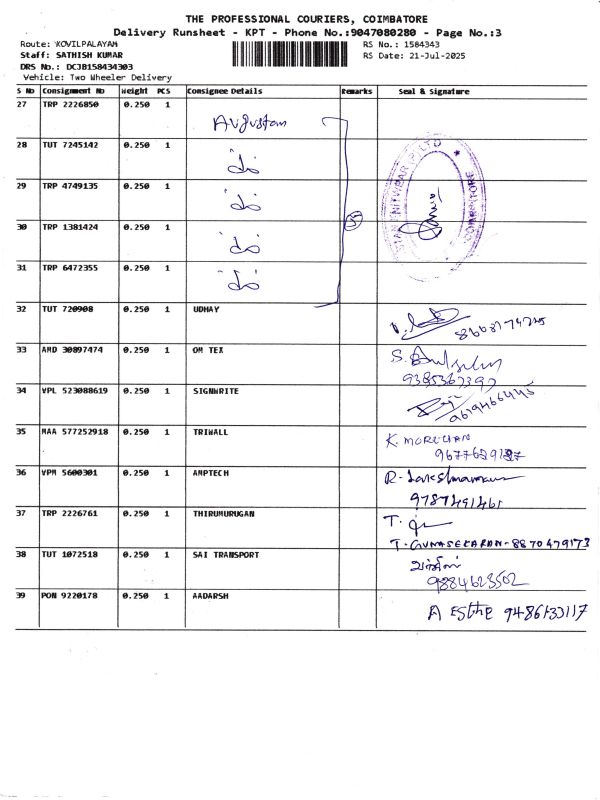 THE PROFESSIONAL COURIERS, COIMBATORE
Delivery Runsheet - KPT - Phone No.:9047080280 - Page No.:3
Route: KOVILPALAYAM
RS No.: 1584343
Staff: SATHISH KUMAR
RS Date: 21-Jul-2025
DRS No.: DCJB158434303
Vehicle: Two Wheeler Delivery
S No Consignment No Weight PCS Consignee Details Remarks Seal & Signature
27 TRP 2226850 0.250 1 Augustan
28 TUT 7245142 0.250 1
29 TRP 4749135 0.250 1
30 TRP 1381424 0.250 1
31 TRP 6472355 0.250 1
32 TUT 720908 0.250 1 UDHAY
33 AMD 30897474 0.250 1 OM TEX
9385367397
34 VPL 523088619 0.250 1 SIGNWRITE
9619466445
35 MAA 577252918 0.250 1 TRIWALL K. MORUHAN
36 VPM 5600301 0.250 1 AMPTECH R. Lakshmanan
9787491461
37 TRP 2226761 0.250 1 THIRUMURUGAN
T. GUNASEKARAN - 8870479173
38 TUT 1072518 0.250 1 SAI TRANSPORT
9884623502
39 PON 9220178 0.250 1 AADARSH A Esthe 9486133117